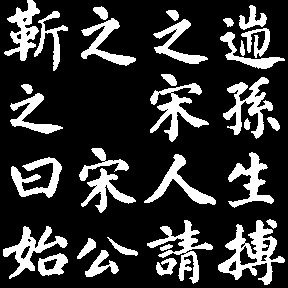 遄孫生搏
之宋人請
之 宋公
靳之曰始